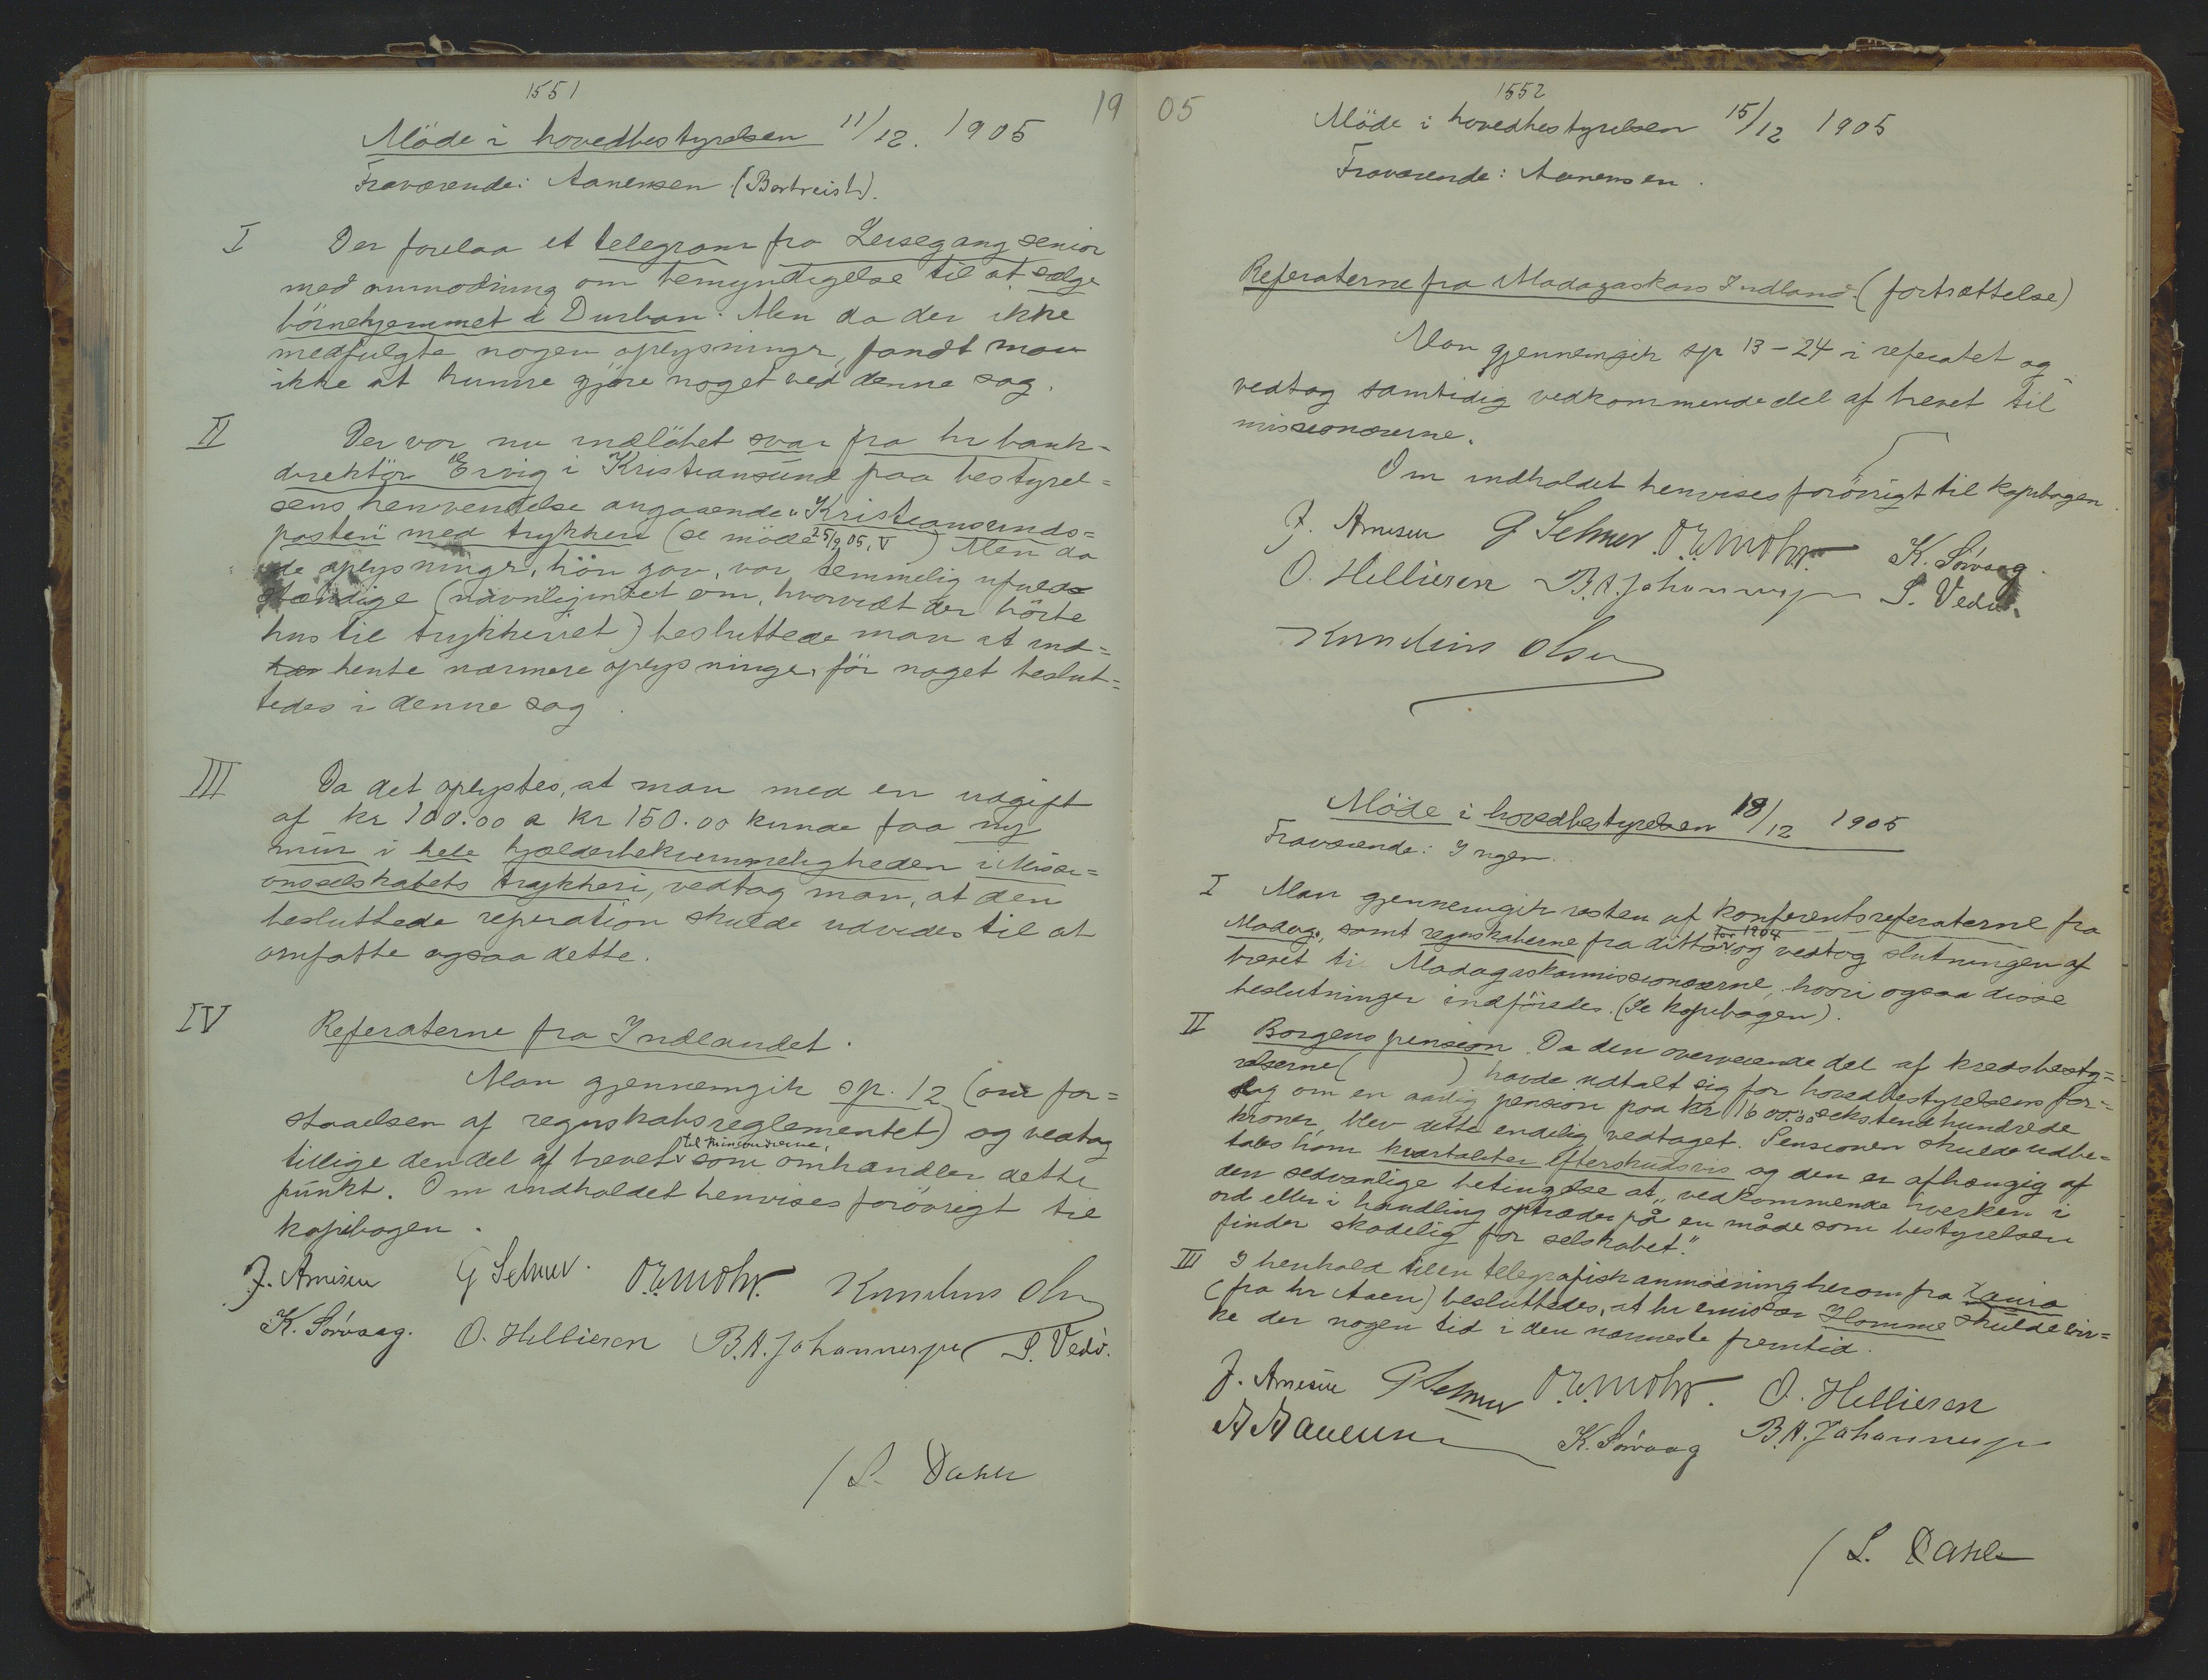 1551
19
Möde i hovedbestyrelsen 11/12. 1905
Fraværende: Aanensen (Bortreist).
I Der forelaa et telegram fra Leisegang senior
med anmodning om bemyndigelse til at sælge
börnehjemmet i Durban. Men da der ikke
medfulgte nogen oplysninger, fandt man
ikke at kunne gjöre noget ved denne sag.
II Der var nu indlöbet svar fra hr bank=
direktör Ervig i Kristiansund paa bestyrel=
sens henvendelse angaaende "Kristiansunds=
posten" med trykkeri (se möde 25/9 05, V) Men da
de oplysninger, hön gav, var temmelig ufuld
stændige (navnlig intet om, hvorvidt der hörte
hus til trykkeriet) besluttede man at ind=
hente nærmere oplysninger, för noget beslut=
tedes i denne sag.
III Da det oplystes, at man med en udgift
af kr 100.00 a kr 150.00 kunde faa ny
mur i hele kjælderbekvemmeligheden i Missi=
onsselskabets trykkeri, vedtog man, at den
besluttede reperation skulde udvides til at
omfatte ogsaa dette.
IV Referaterne fra Indlandet.
Man gjennemgik sp. 12 (om for=
staaelsen af regnskabsreglementet) og vedtog
tillige den del af brevet til missionærerne, som omhandler dette
punkt. Om indholdet henvises forövrigt til
kopibogen.
J. Arnesen G Selmer. O.E. Mohr. Knudens Olsen
K. Sörvaag. O. Hellieren B.A. Johannesen S. Vedö.
/ L. Dahle
1552
05
Möde i hovedbestyrelsen 15/12 1905
Fraværende: Aanensen.
Referaterne fra Madagaskars Indland. (fortsættelse)
Man gjennemgik sp 13-24 i referatet og
vedtog samtidig vedkommende del af brevet til
missionærerne.
Om indholdet henvises forövrigt til kopibogen.
J. Arnesen G Selmer. O.E. Mohr. K. Sörvaag.
O. Hellieren B.A. Johannesen S. Vedö.
Knudens Olsen
Möde i hovedbestyrelsen 18/12 1905
Fraværende: Ingen.
I Man gjennemgik resten af konferentsreferaterne fra
Madag., samt regnskaberne fra ditto for 1904 og vedtog slutningen af
brevet til Madagaskarmissionærerne, hvori ogsaa disse
beslutninger indförtes. (Se kopibogen).
II Borgens pension. Da den overveiende del af kredsbesty=
relserne ( ) havde udtalt sig for hovedbestyrelsens for=
slag om en aarlig pension paa kr 1600.00 sekstenhundrede
kroner, blev dette endelig vedtaget. Pensionen skulde udbe=
tales ham kvartaliter efterskudsvis og den er afhængig af
den sedvanlige betingelse at "vedkommende hverken i
ord eller i handling optræder på en måde som bestyrelsen
finder skadelig for selskabet."
III I henhold til en telegrafisk anmodning herom fra Zaura
(fra hr Aaen) besluttedes, at hr emissær Homme skulde vir=
ke der nogen tid i den nærmeste fremtid.
J. Arnesen G Selmer O.E. Mohr. O. Hellieren
A Aanensen K. Sörvaag B.A. Johannesen
/ L. Dahle